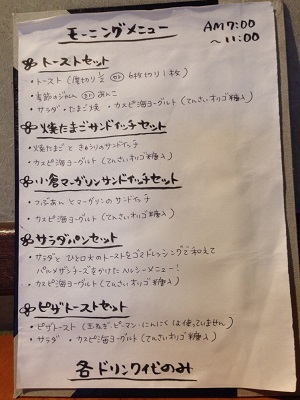 モーニングメニュー
AM7:00
～11:00
トーストセット
・トースト(厚切り1/2 or 6枚切り1枚)
・季節のジャム or あんこ
・サラダ・たまご焼・カスピ海ヨーグルト(てんさいオリゴ糖入)
焼たまごサンドイッチセット
・焼たまごときゅうりのサンドイッチ
・カスピ海ヨーグルト(てんさいオリゴ糖入)
小倉マーガリンサンドイッチセット
・つぶあんとマーガリンのサンドイッチ
・カスピ海ヨーグルト(てんさいオリゴ糖入)
サラダパンセット
・サラダとひと口大のトーストをゴマドレッシングで和えて
パルメザンチーズをかけたヘルシーメニュー!
・カスピ海ヨーグルト(てんさいオリゴ糖入)
ピザトーストセット
・ピザトースト(玉ねぎ・ピーマン・にんにくは使っていません)
・サラダ ・カスピ海ヨーグルト(てんさいオリゴ糖入)
各ドリンク代のみ